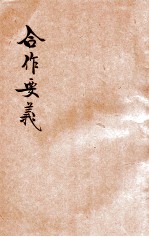 合作要義